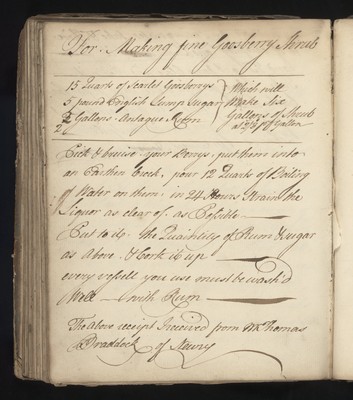 For Making fine Goosberry Shrub
15 Quarts of Scarlet Goosberrys
5 pound English Lump Sugar
2 Gallons Antague Rum
2
Which will
Make Six
Gallons of Shrub
at
Gallon
Pick & bruise your Berrys, put them into
an Earthen Crock, pour 12 Quarts of Boiling
Water on them, in 24 Hours Strain the
Liquor as clear of, as Posible —
Put to it, the Quaintity of Rum & Sugar
as Above, & Cork it up —
every vessell you use must be wash'd
Well — with Rum —
The above receipt I received from Mr Thomas
Braddock of Newry